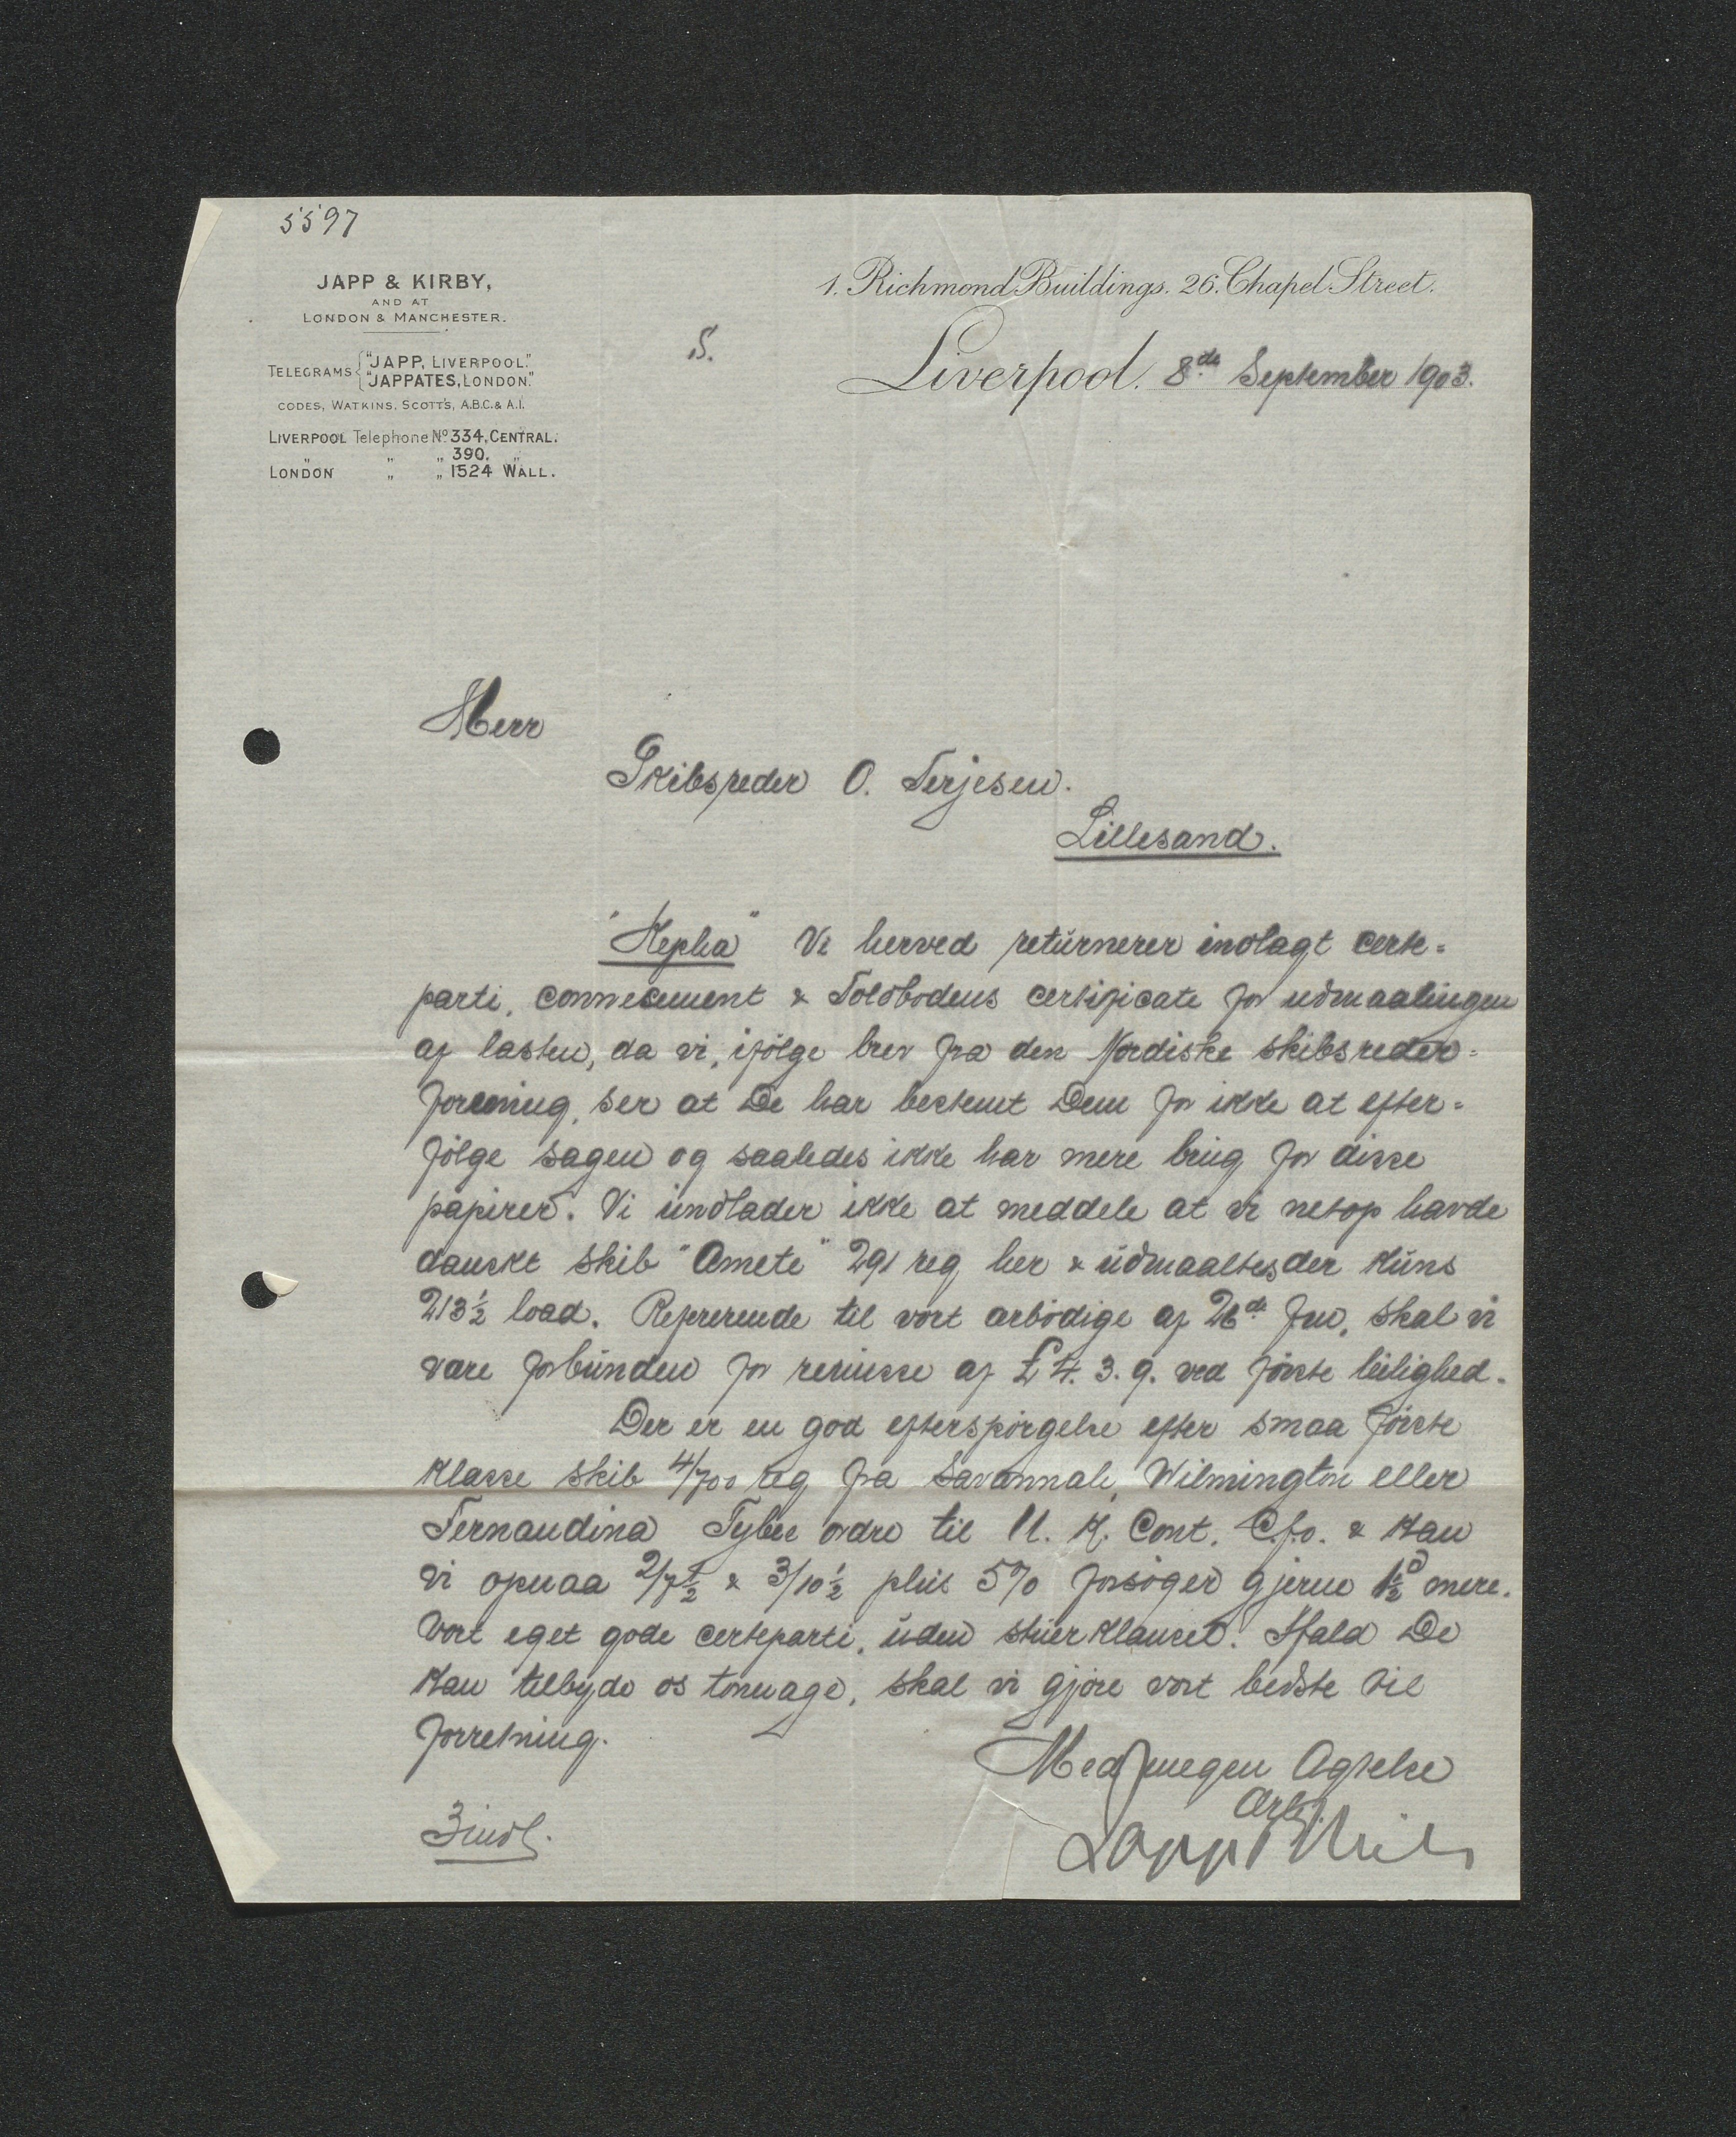 5597
JAPP & KIRBY,
AND AT
LONDON & MANCHESTER.
TELEGRAMS { "JAPP, LIVERPOOL."
"JAPPATES, LONDON."
CODES, WATKINS, SCOTT'S, A.B.C. & A.I.
LIVERPOOL Telephone No. 334, CENTRAL.
" " " 390. "
LONDON " " 1524 WALL.
1. Richmond Buildings. 26. Chapel Street.
S.
Liverpool. 8de September 1903.
Herr
Skibsreder O. Terjesen.
Lillesand.
"Hepha" Vi herved returnerer indlagt certe=
parti, connecement & Toldbodens certificate for udmaalingen
af lasten, da vi, ifölge brev fra den Nordiske skibsreder=
forening, ser at De har bestemt Dem for ikke at efter=
fölge sagen og saaledes ikke har mere brug for disse
papirer. Vi undlader ikke at meddele at vi netop havde
danskt skib "Amete" 291 reg her & udmaaltes der kuns
213½ load. Refererende til vort arbödige af 26de Juu, skal vi
være forbunden for remisse af £4.3.9. ved förste leilighed.
Der er en god efterspörgelse efter smaa förste
klasse skib 4/700 reg fra Savannah, Wilmington eller
Fernandina Tybee ordre til U. K. Cont. C.f.o. & kan
vi opnaa 2/7½ & 3/10½ plus 5% forsöger gjerne 1½d mere.
Vort eget gode certeparti, uden stuerklausel. Ifald De
kan tilbyde os tonnage, skal vi gjöre vort bedste til
forretning.
Med megen Agtelse
Arb.
Japp & Kirby
3 indl.